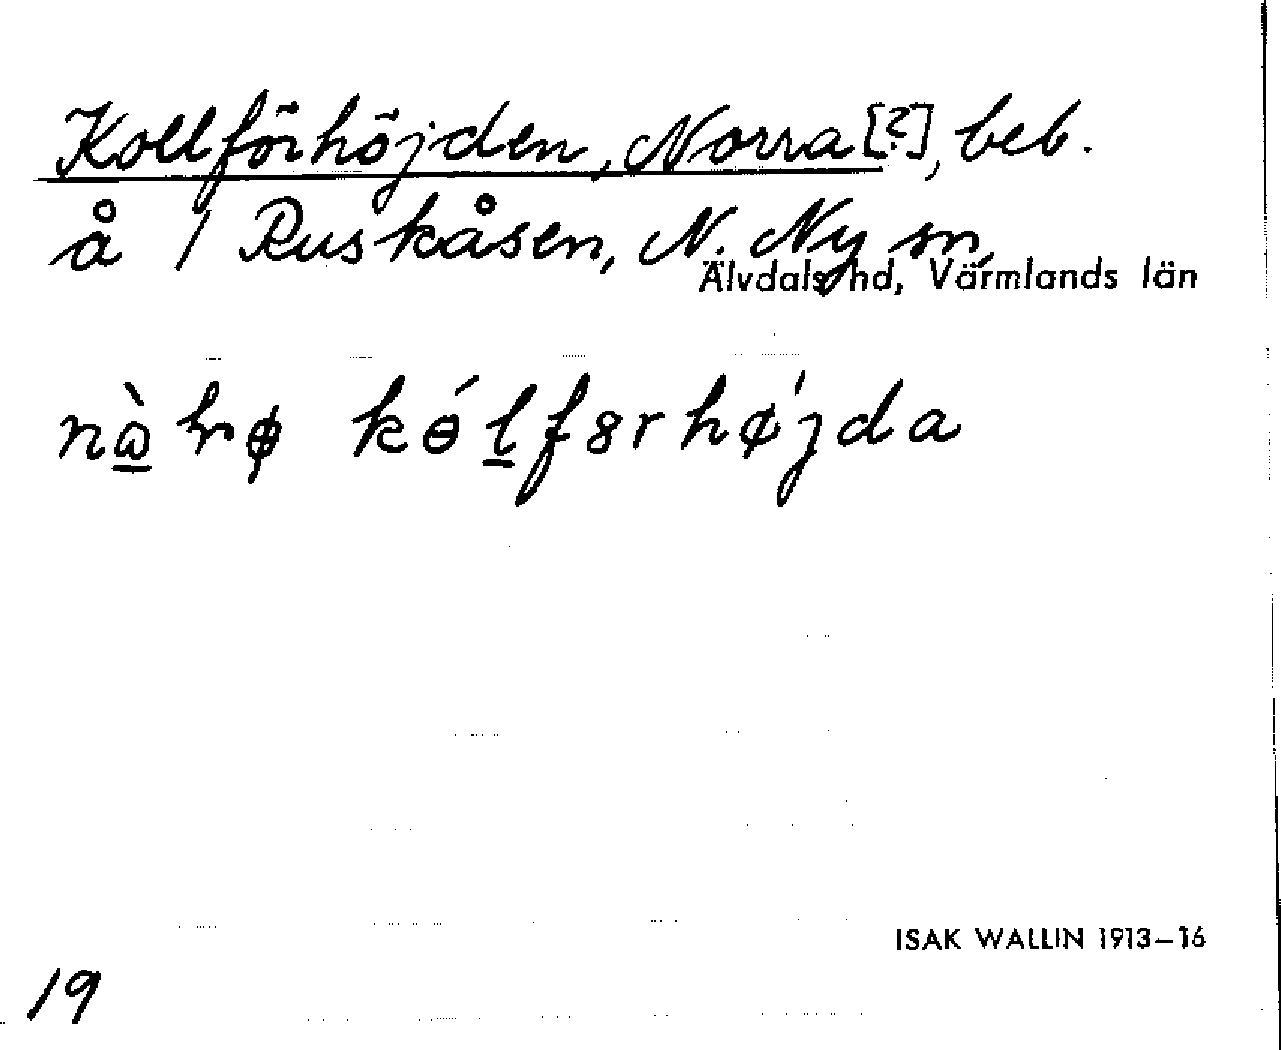 Kollförhöjden, Norra [?], beb.
å 1 Ruskåsen, N. Ny sn,
Älvdals hd, Värmlands län
nὼ̲hrφ kɵ́l̲fȣrhø̍jda
ISAK WALLIN 1913–16
19